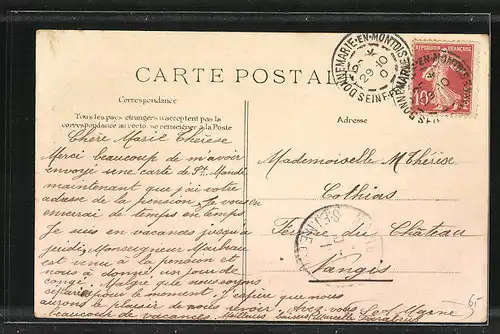 CARTE POSTALE
Correspondance
Tous les pays étrangers n'acceptent pas la
correspondance au recto, se renseigner à la Poste
Adresse
DONNEMARIE-EN-MONTOIS
29 - 10
SEINE-ET-
RÉPUBLIQUE FRANÇAISE
10c
POSTES
Chère Marie Thérèse
Merci beaucoup de m'avoir
envoyé une carte de St Mandé
maintenant que j'ai votre
adresse de la pension je vous en
enverrai de temps en temps.
Je suis en vacances jusqu'à
jeudi, Monseigneur
est venu à la pension et
nous a donné, un jour de
congé. Malgré que nous soyons
pour le moment. J'espère que nous
aurons le plaisir de nous revoir chez vous
beaucoup de vacances. Meilleurs baisers
Mademoiselle M Thérèse
Cothias
Ferme du Château
Nangis
Set Marne
65-